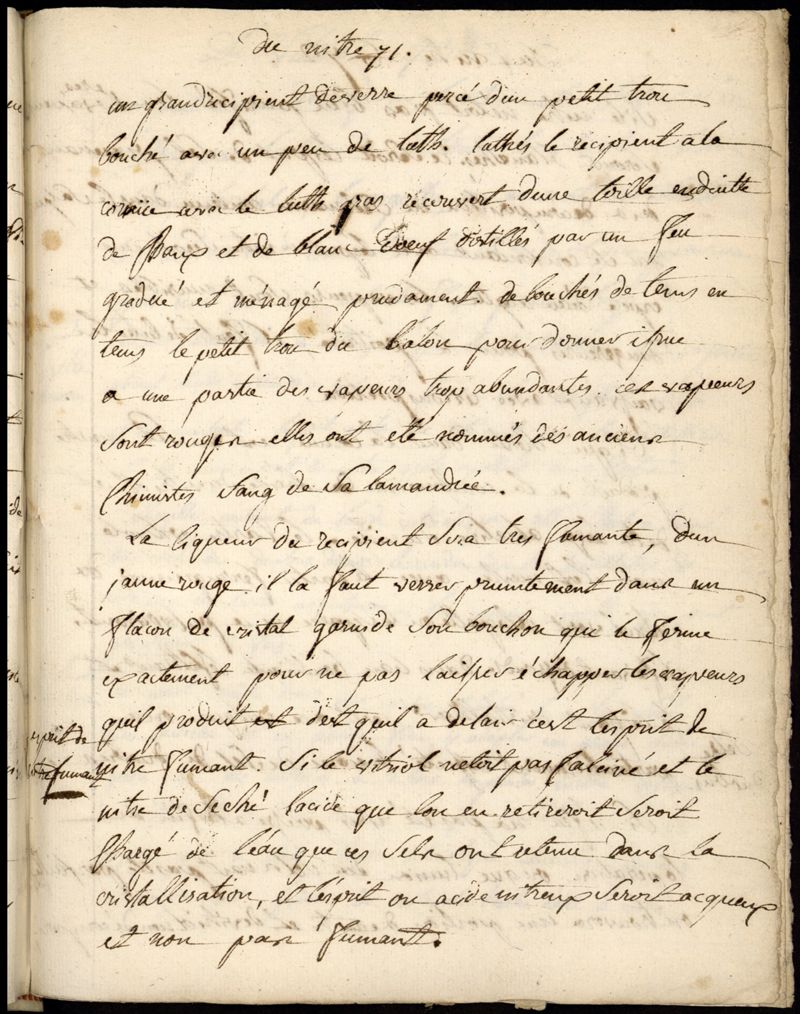 du nitre 71.
un grand recipient de verre percé d'un petit trou
bouché avec un peu de luth. luthés le recipient a la
cornue avec le luth gras recouvert d'une toille enduitte
de Chaux et de blanc d'oeuf distillés par un feu
gradué et ménagé prudament. debouchés de tems en
tems le petit trou du balon pour donner issue
a une partie des vapeurs trop abundantes. ces vapeurs
Sont rouges elles ont eté nommés des anciens
Chimistes Sang de Salamandrée.
La liqueur du recipient Sera tres fumante, d'un
jaune rouge. il la faut verser promtement dans un
flacon de cristal garni de Son bouchon qui le ferme
exactement pour ne pas laisser échapper les vapeurs
quil produit des quil a de lair c'est l'esprit de
nitre fumant. Si le vitriol n'etoit pas Calciné et le
nitre deSeché lacide que lon en retireroit Seroit
Chargé de l'éau que ces Sels ont retenu dans la
cristallisation, et l'esprit ou acide nitreux Seroit acqueux
et non pas fumant.
esprit de
nitre fumant